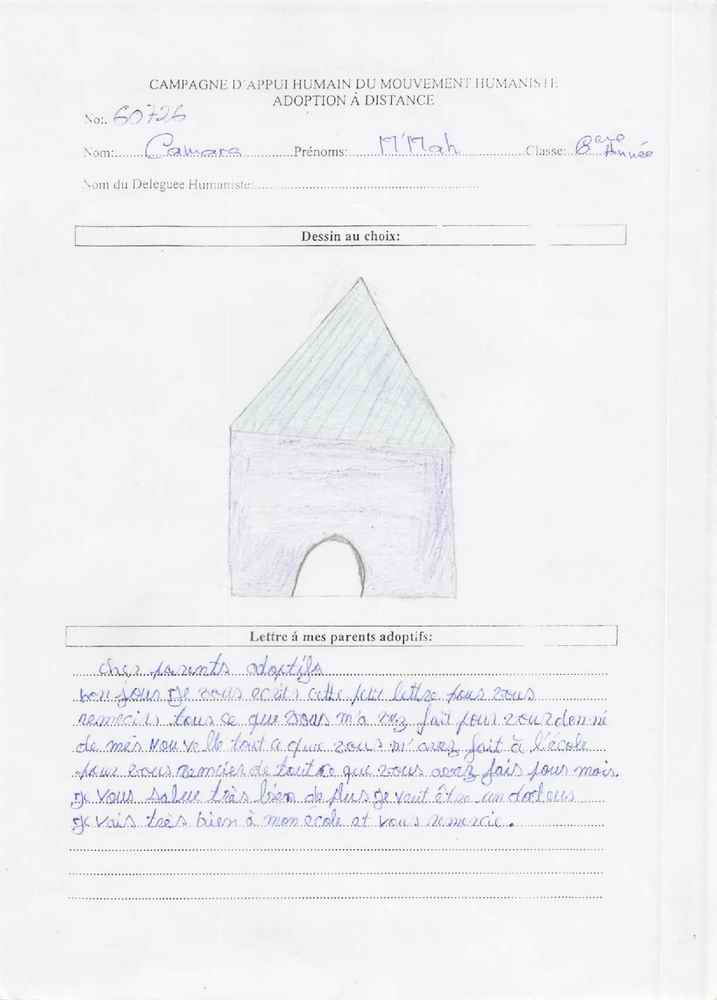 CAMPAGNE D'APPUI HUMAIN DU MOUVEMENT HUMANISTE
ADOPTION À DISTANCE
No:. 60726
Nom: Camara Prénoms: M'Mah Classe: 8ème Année
Nom du Deleguee Humaniste:
Dessin au choix:
Lettre á mes parents adoptifs:
cher parents adoptifs
bon jour je vous ecris cette lettre pour vous
remecier tous ce que vous m'a vez fait pour vour donné
de mes nouvelle tout ce que vous m'avez fait à l'école
pour vous remcier de tout ce que vous avez fais pour mois.
je vous salue très bien de plus je veut être un docteur
je vais très bien à mon ecole et vous remercie.